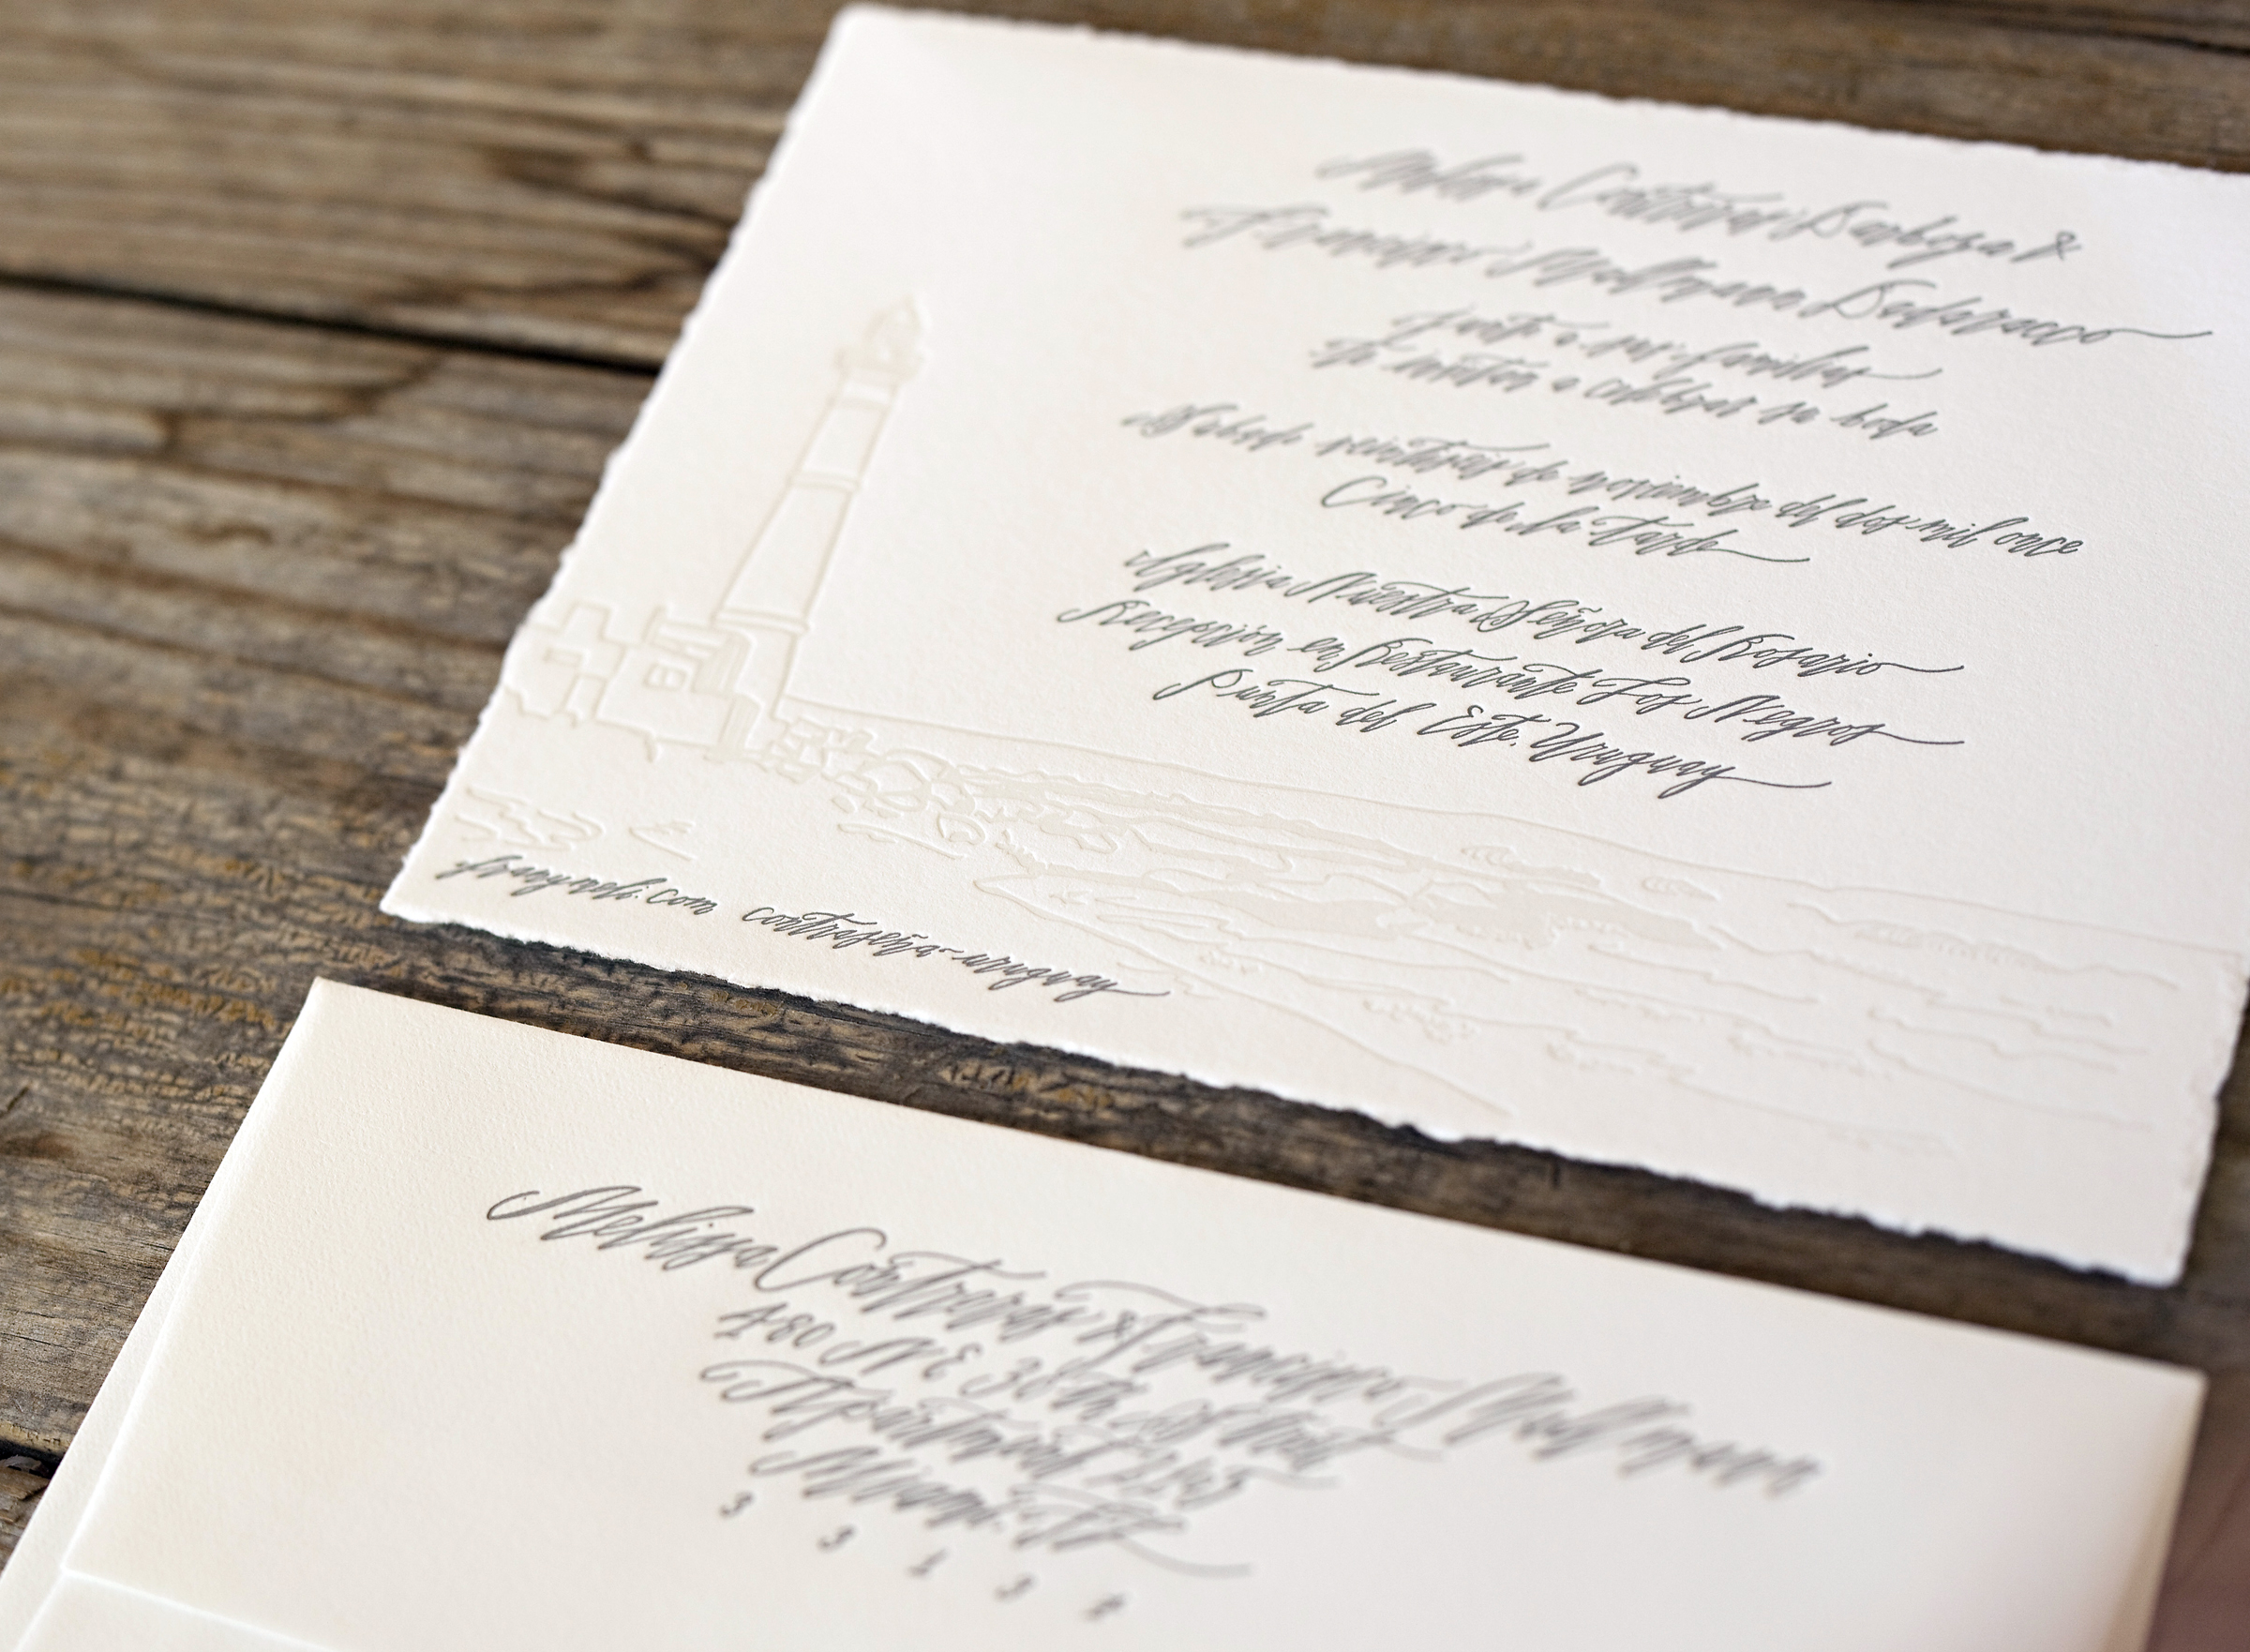 Melissa Contreras Barboza &
Francisco Mallmann
Junto a sus familias
te invitan a celebrar su boda
Sábado veintiseis de noviembre del dos mil once
Cinco de la tarde
Iglesia Nuestra Señora del Rosario
Recepción en Restaurante Los Negros
Punta del Este, Uruguay
franymeli.com contraseña-uruguay
Melissa Contreras & Francisco Mallmann
480 NE 30th Street
Apartment
Miami, FL
3 3 1 3